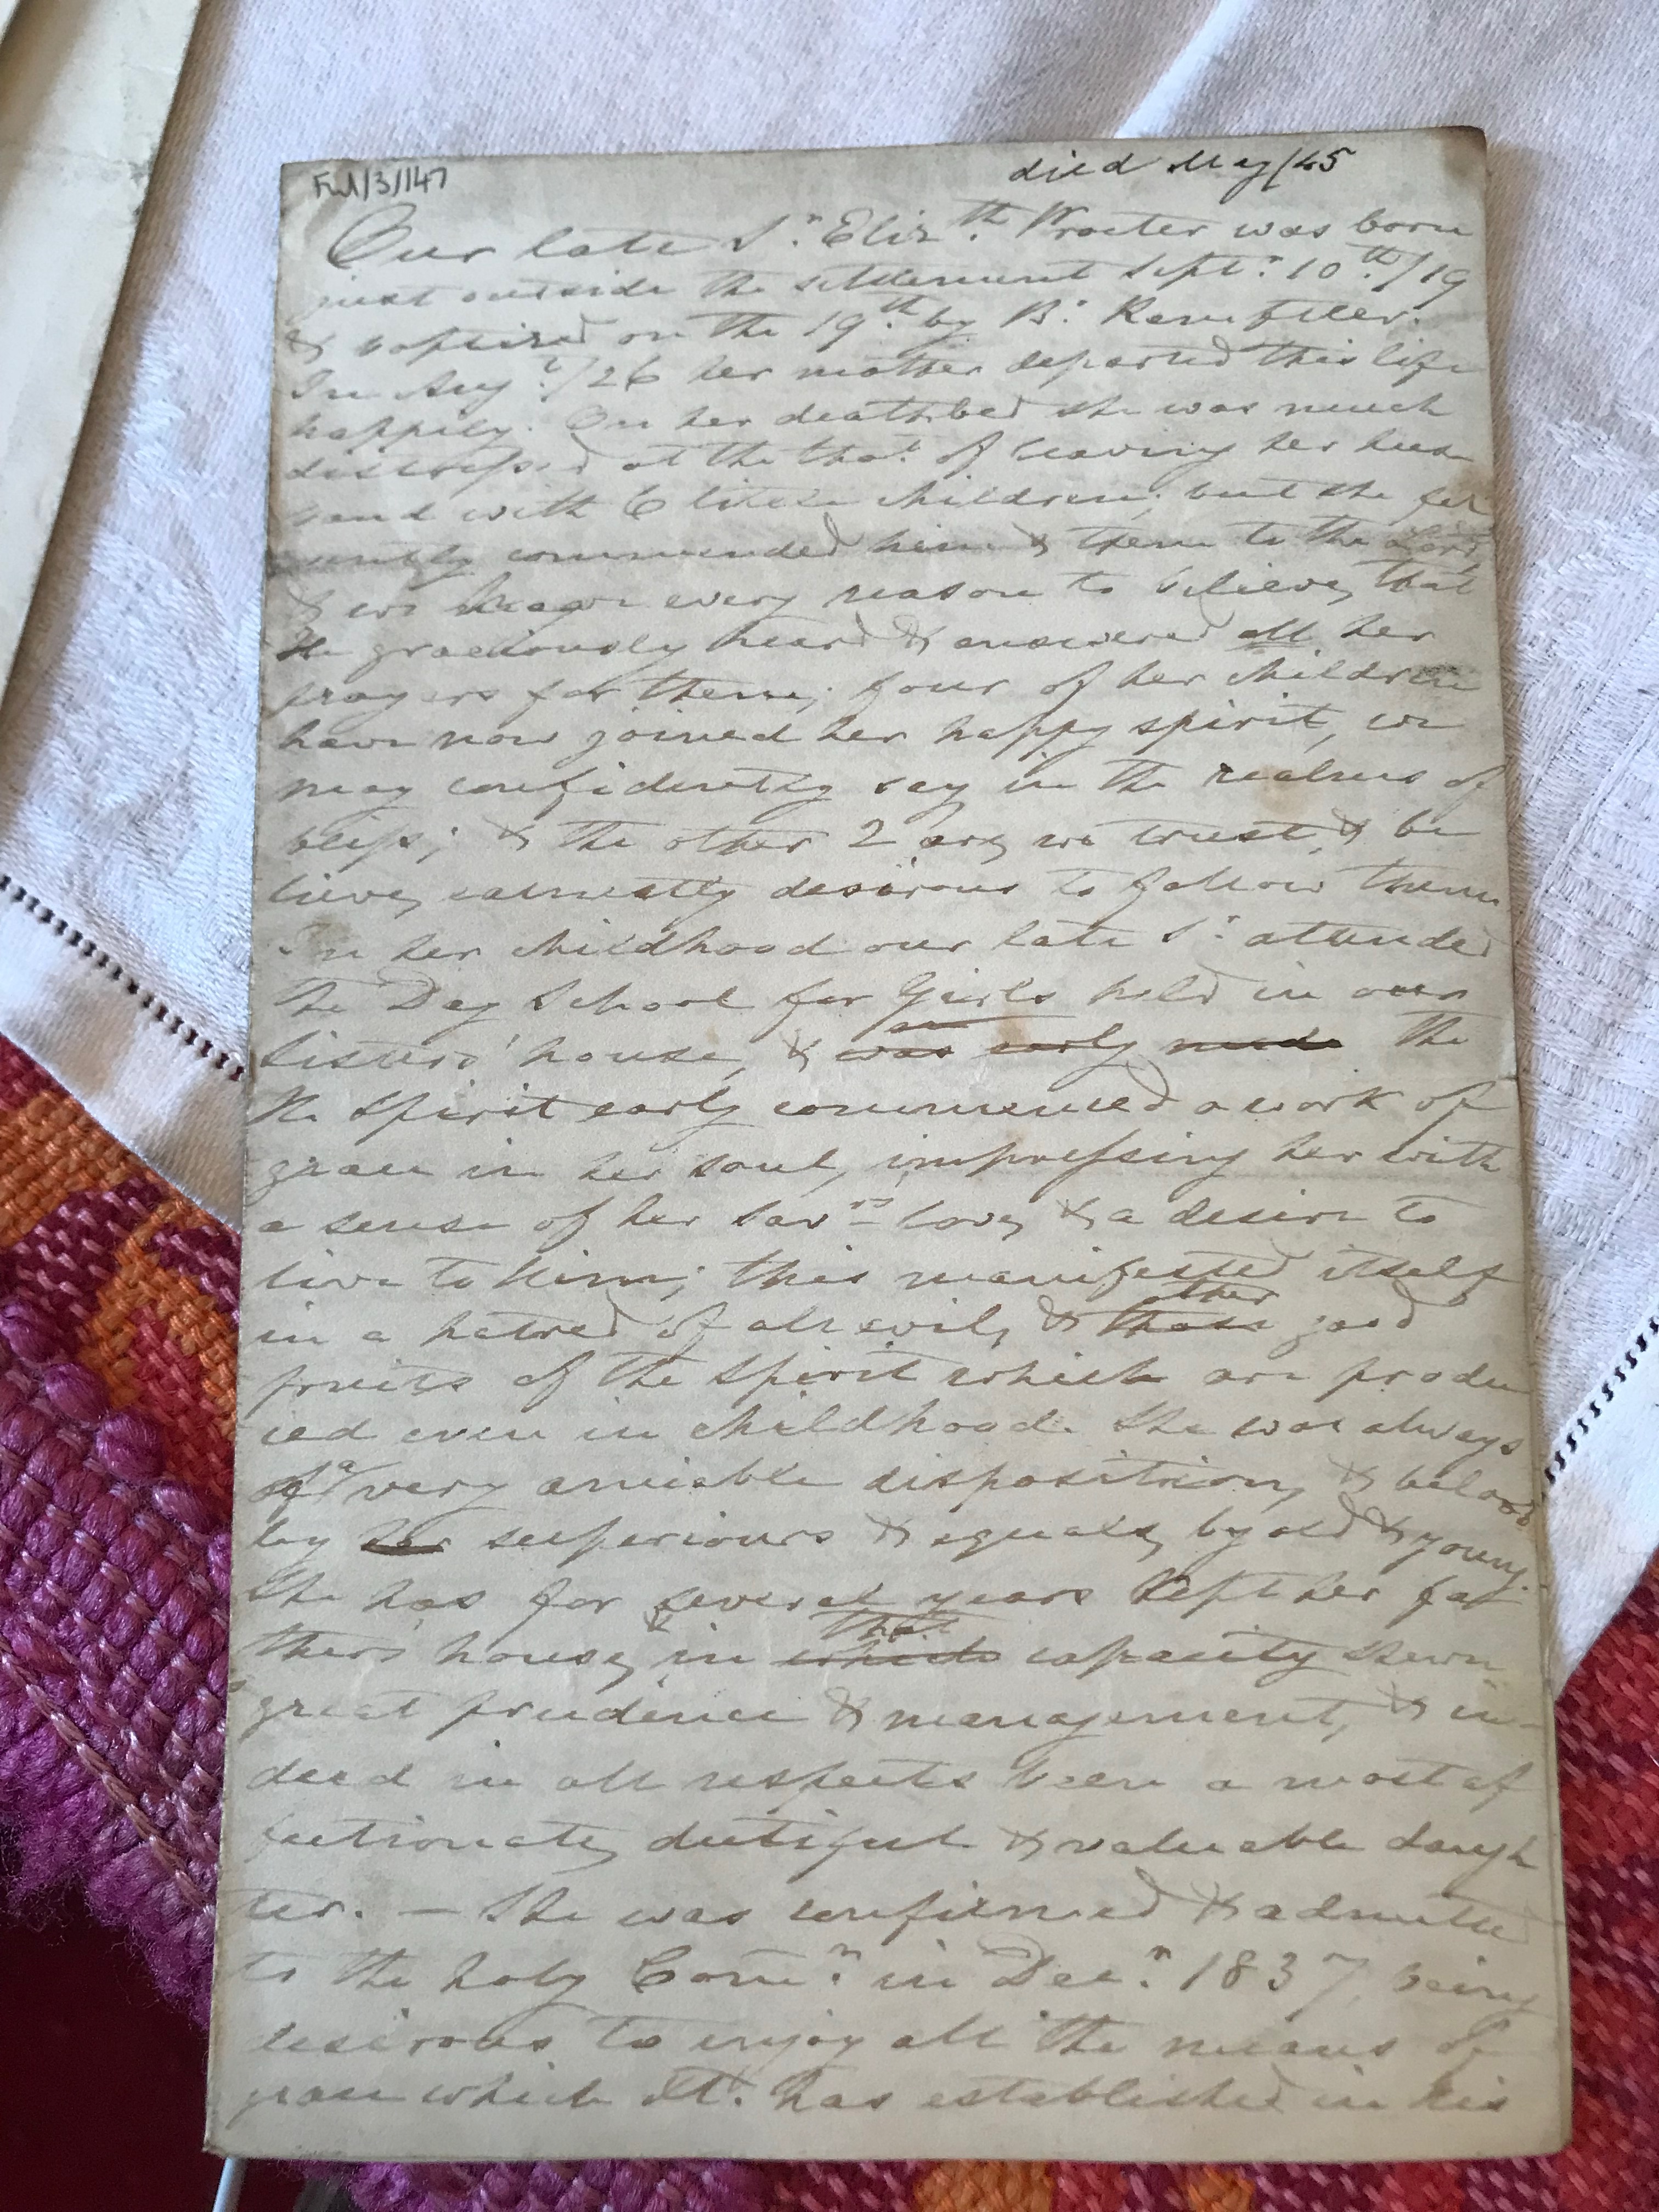 Ful/3/147
died May/45
Our late Sr. Elizth. Procter was born
just outside the settlement Septr. 10th./19
& baptized on the 19th. by Br. Ramftler.
In Augt./26 her mother departed this life
happily. On her deathbed she was much
distressed at the thot. of leaving her hus-
band with 6 little children; but she fer
vently commended him & them to the Lord
& we have every reason to believe, that
He graciously heard & answered all her
prayers for them; four of her children
have now joined her happy spirit, we
may confidently say in the realms of
bliss; & the other 2 are, we trust, & be
lieve, earnestly desirous to follow them
In her childhood our late Sr. attended
the Day School for Girls held in our
Sisters' house, & was early made the
H. Spirit early commenced a work of
grace in her soul, impressing her with
a sense of her Savrs. love, & a desire to
live to Him; this manifested itself
in a hatred of all evil, & those other good
fruits of the Spirit which are produ
ced even in childhood. She was always
of a very amiable disposition, & beloved
by her superiours & equals, by old & young.
She has for several years kept her fa
thers' house, & in which that capacity shewn
great prudence & management, & in-
deed in all respects been a most af
fectionate, dutiful & valuable daugh
ter. — She was confirmed & admitted
to the holy Comn. in Decr. 1837, being
desirous to enjoy all the means of
grace which has established in his